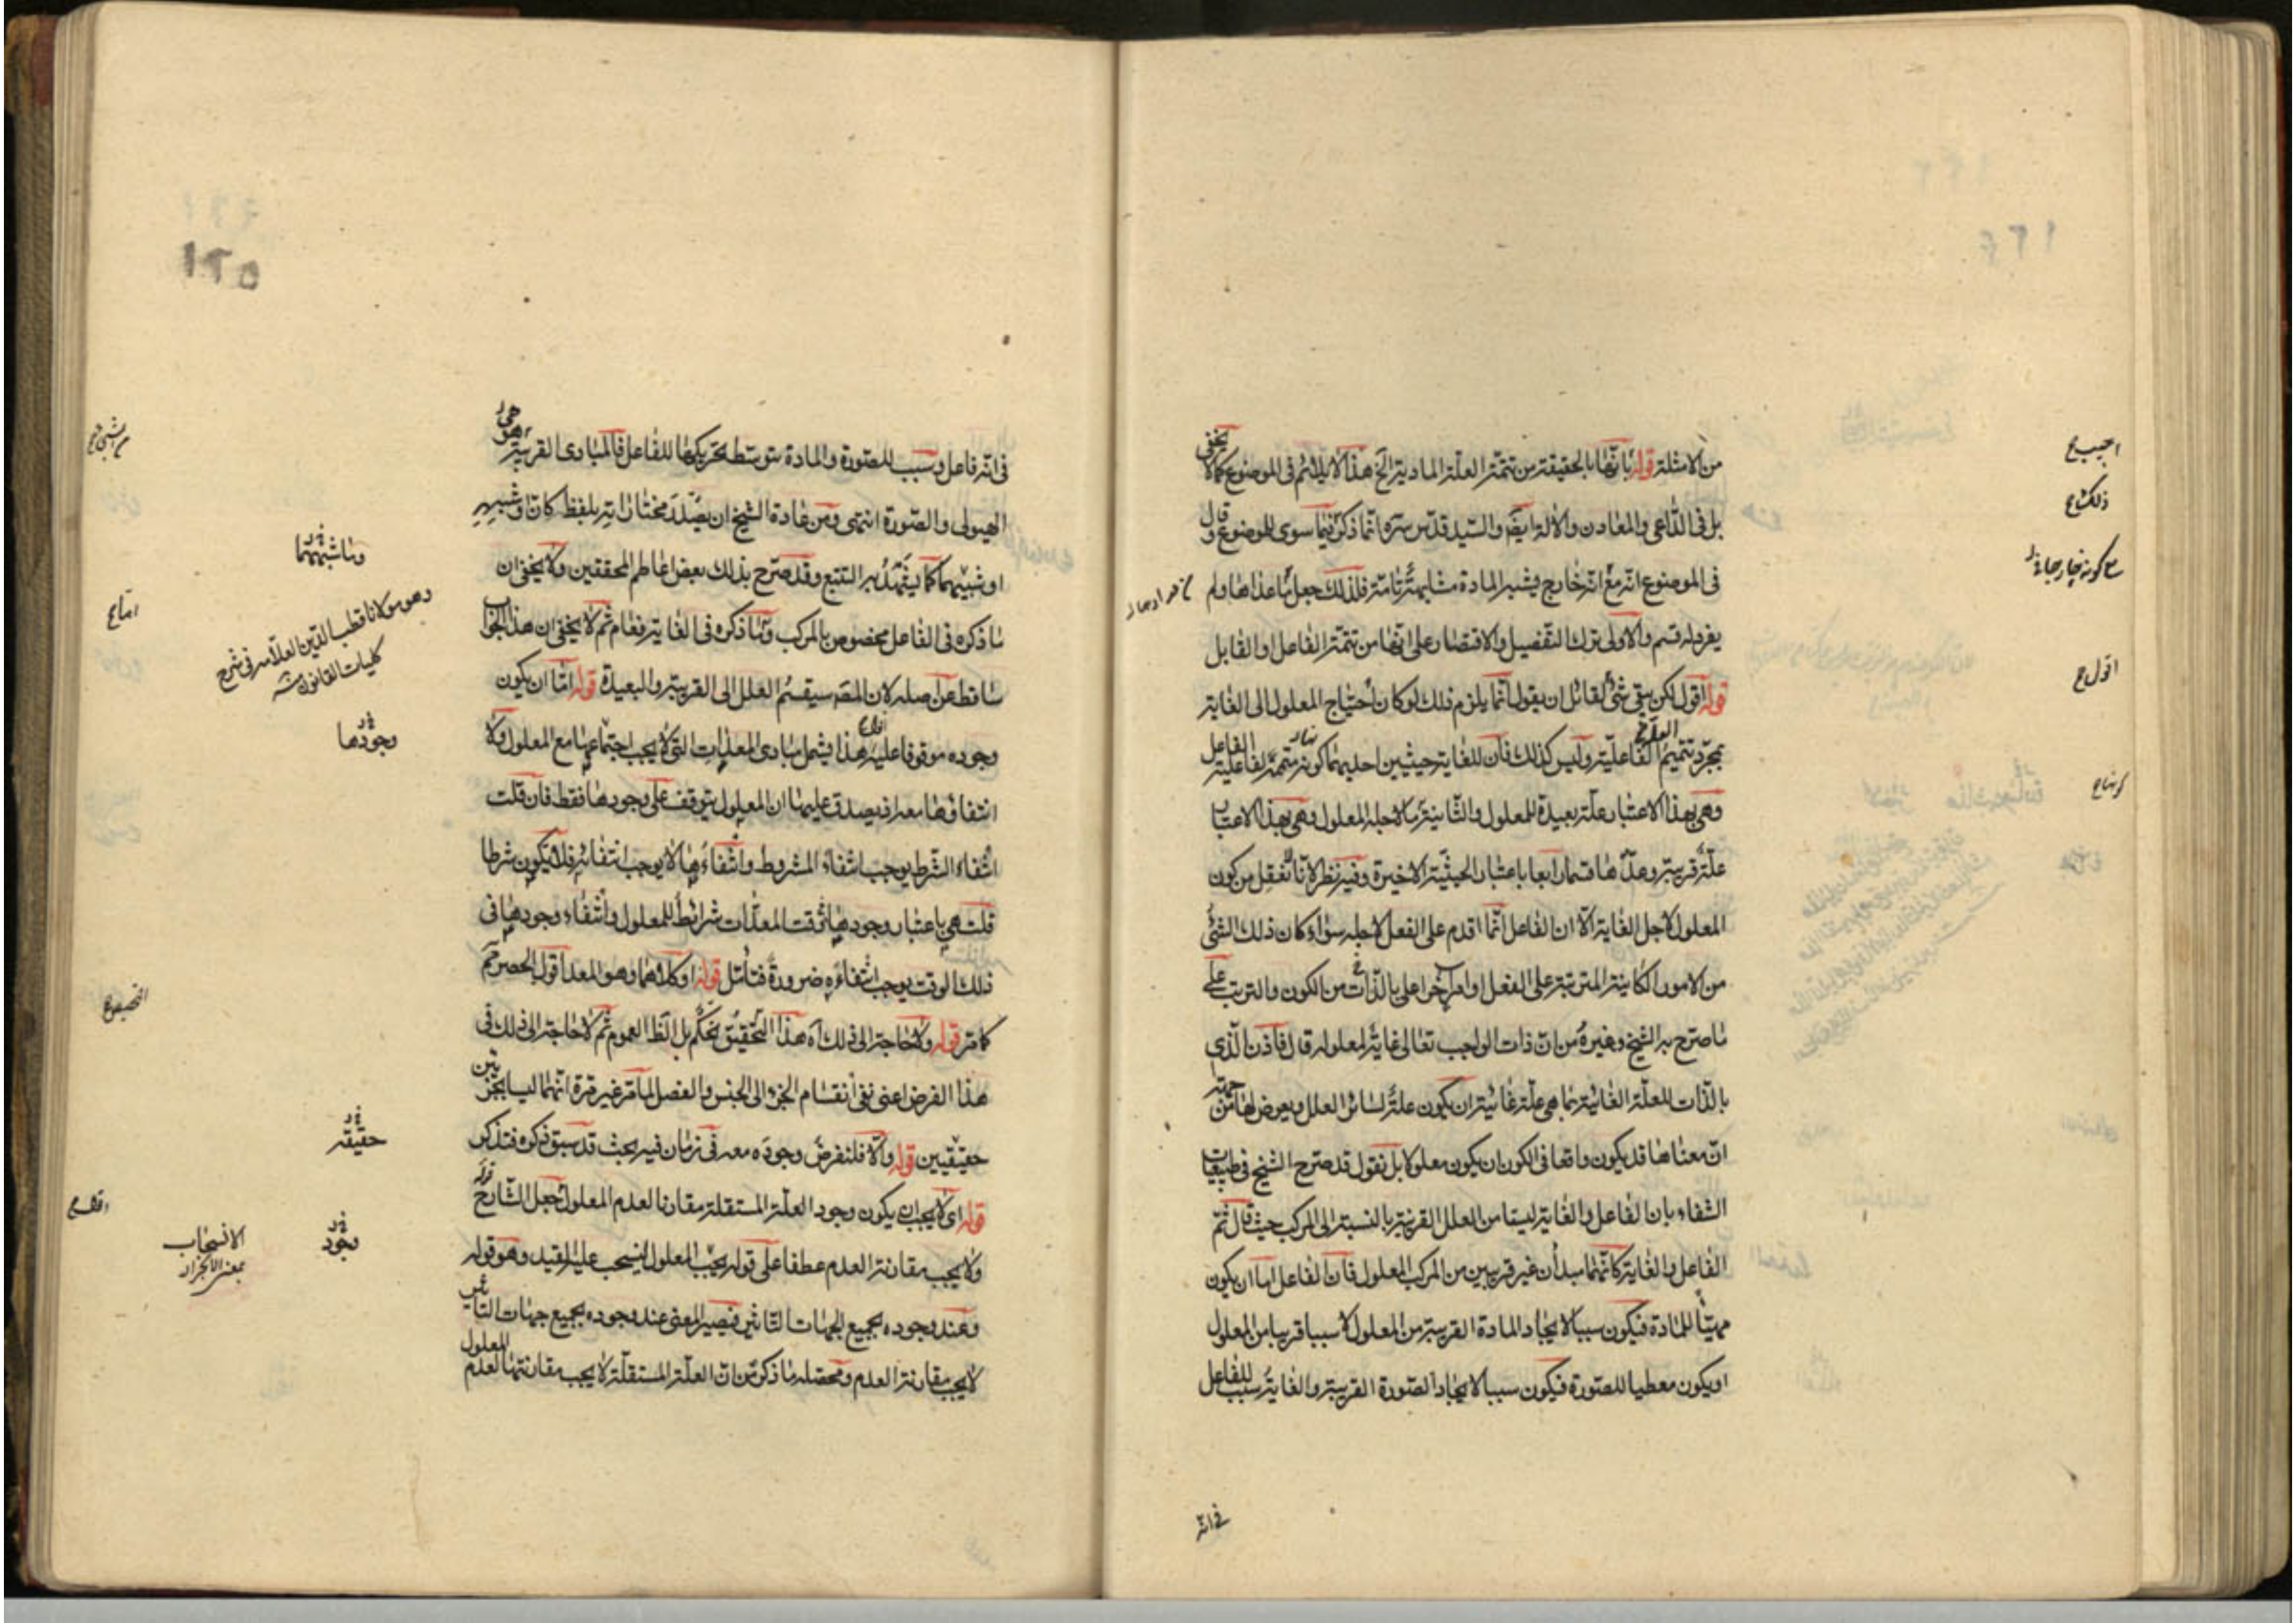 من الامثلة قوله بانها بالحقيقة من تتمة العلة المادية الخ هذا لا يلائم فى الموضوع كما لا يخفى
بل فى الداعى والمعادن والالة ايضا والسيد قدس سره انما ذكر فيما سوى الموضوع وقال
فى الموضوع انه مع انه خارج يشبه المادة مشابهة تامة فلذلك جعل ما عداها ولم
يفرد له قسم والاولى ترك التفصيل والاقتصار على انها من تتمة الفاعل او القابل
قوله اقول لكن بقى شئ لقائل ان يقول انما يلزم ذلك لو كان احتياج المعلول الى الغاية
بمجرد تتميم الفاعلية وليس كذلك فان للغاية حيثيتين احديهما كونه متممة لفاعلية الفاعل
وهى بهذا الاعتبار علة بعيدة للمعلول والثانية ما لاجله المعلول وهى بهذا الاعتبار
علة قريبة وعدها قسما رابعا باعتبار الحيثية الاخيرة وفيه نظر لانا لا نعقل من كون
المعلول لاجل الغاية الا ان الفاعل انما اقدم على الفعل لاجله سواء كان ذلك الشئ
من الامور الكاينة المترتبة على الفعل او امرا اخر اعلى بالذات من الكون والترتب على
ما صرح به الشيخ وغيره من ان ذات الواجب تعالى غاية لمعلوله قال فاذن الذى
بالذات للعلة الغائية بما هى علة غائية ان يكون علة لسائر العلل ويعرض لها من جهة
ان معناها قد يكون واقعا فى الكون ان يكون معلولا بل نقول قد صرح الشيخ فى طبيعيات
الشفاء بان الفاعل والغاية ليستا من العلل القريبة بالنسبة الى المركب حيث قال ثم
الفاعل والغاية كانهما مبدأن غير قريبين من المركب المعلول فان الفاعل اما ان يكون
مهيئا للمادة فيكون سببا لايجاد المادة القريبة من المعلول لا سببا قريبا من المعلول
او يكون معطيا للصورة فيكون سببا لايجاد الصورة القريبة والغاية سبب للفاعل
فى انه
اجيب ع
ذلك ع
اقول ع
١٢٥
فى انه فاعل وسبب للصورة والمادة بتوسط تحريكها للفاعل فالمبادى القريبة هى
الهيولى والصورة انتهى ومن عادة الشيخ ان يصدر مختاراته بلفظ كان وشبهه
او شبيههما كما يشهد به التتبع وقد صرح بذلك بعض اعاظم المحققين ولا يخفى ان
ما ذكره فى الفاعل مخصوص بالمركب وما ذكره فى الغاية فعام ثم لا يخفى ان هذا الجواب
ساقط عن اصله لان المص سيقسم العلل الى القريبة والبعيدة قوله اما ان يكون
وجوده موقوفا عليه هذا يشمل مبادى المعدات التى لا يجب اجتماعها مع المعلول ولا
انتفاؤها معه اذ يصدق عليها ان المعلول يتوقف على وجودها فقط فان قلت
انتفاء الشرط يوجب انتفاء المشروط وانتفاءها لا يوجب انتفائه فلا يكون شرطا
قلت هى باعتبار وجودها فى وقت المعدات شرائط للمعلول وانتفاء وجودها فى
ذلك الوقت يوجب انتفاءه ضرورة فتأمل قوله او كلاهما وهو المعد اقول الحصر تم
كما مر قوله ولا حاجة الى ذلك اه هذا التحقيق تحكم بل الظ العموم ثم لا حاجة الى ذلك فى
هذا الفرض اعنى نفى انقسام الجزء الى الجنس والفصل لما مر غير مرة انهما ليسا بجزئين
حقيقيين قوله والا فلنفرض وجوده معه فى زمان فيه بحث قد سبق ذكره فتذكر
قوله اى لا يجب ان يكون وجود العلة المستقلة مقارنا لعدم المعلول جعل الشارح قوله
ولا يجب مقارنة العدم عطفا على قوله يجب المعلول لينسحب عليه القيد وهو قوله
وعند وجوده بجميع الجهات التاثير فيصير المعنى عند وجوده بجميع جهات التاثير
لا يجب مقارنة العدم ومحصله ما ذكر من ان العلة المستقلة لا يجب مقارنتها لعدم المعلول
وما شبههما
وهو مولانا قطب الدين العلامه فى شرح
كليات القانون منه
وجودها
حقيقة
وجود
الانسحاب
بمعنى الانجرار